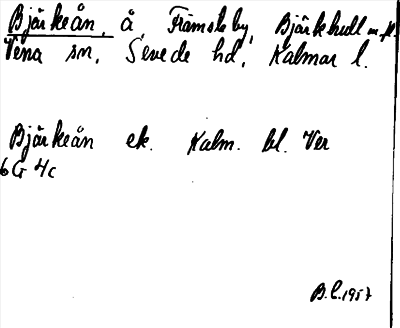 Bjärkeån, å, Främsteby, Bjärkhult m.fl.
Vena sn, Sevede hd, Kalmar l.
Bjärkeån ek. Kalm. bl. Ver
6G 4c
B.L. 1957